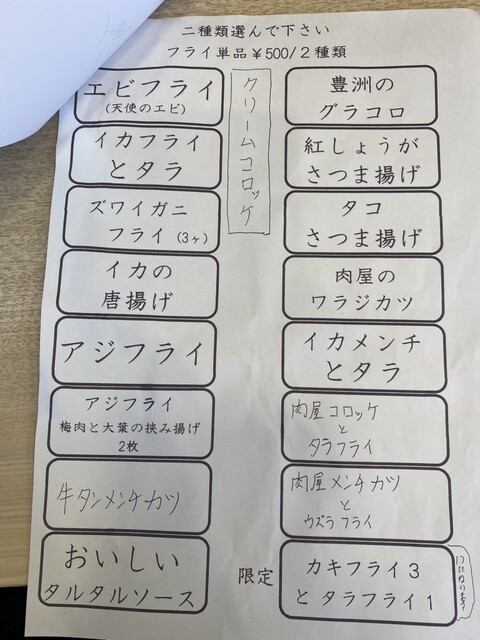 二種類選んで下さい
フライ単品￥500/２種類
エビフライ
(天使のエビ)
イカフライ
とタラ
ズワイガニ
フライ (3ヶ)
イカの
唐揚げ
アジフライ
アジフライ
梅肉と大葉の挟み揚げ
2枚
牛タンメンチカツ
おいしい
タルタルソース
クリームコロッケ
豊洲の
グラコロ
紅しょうが
さつま揚げ
タコ
さつま揚げ
肉屋の
ワラジカツ
イカメンチ
とタラ
肉屋コロッケ
と
タラフライ
肉屋メンチカツ
と
ウズラフライ
限定
カキフライ３
とタラフライ１